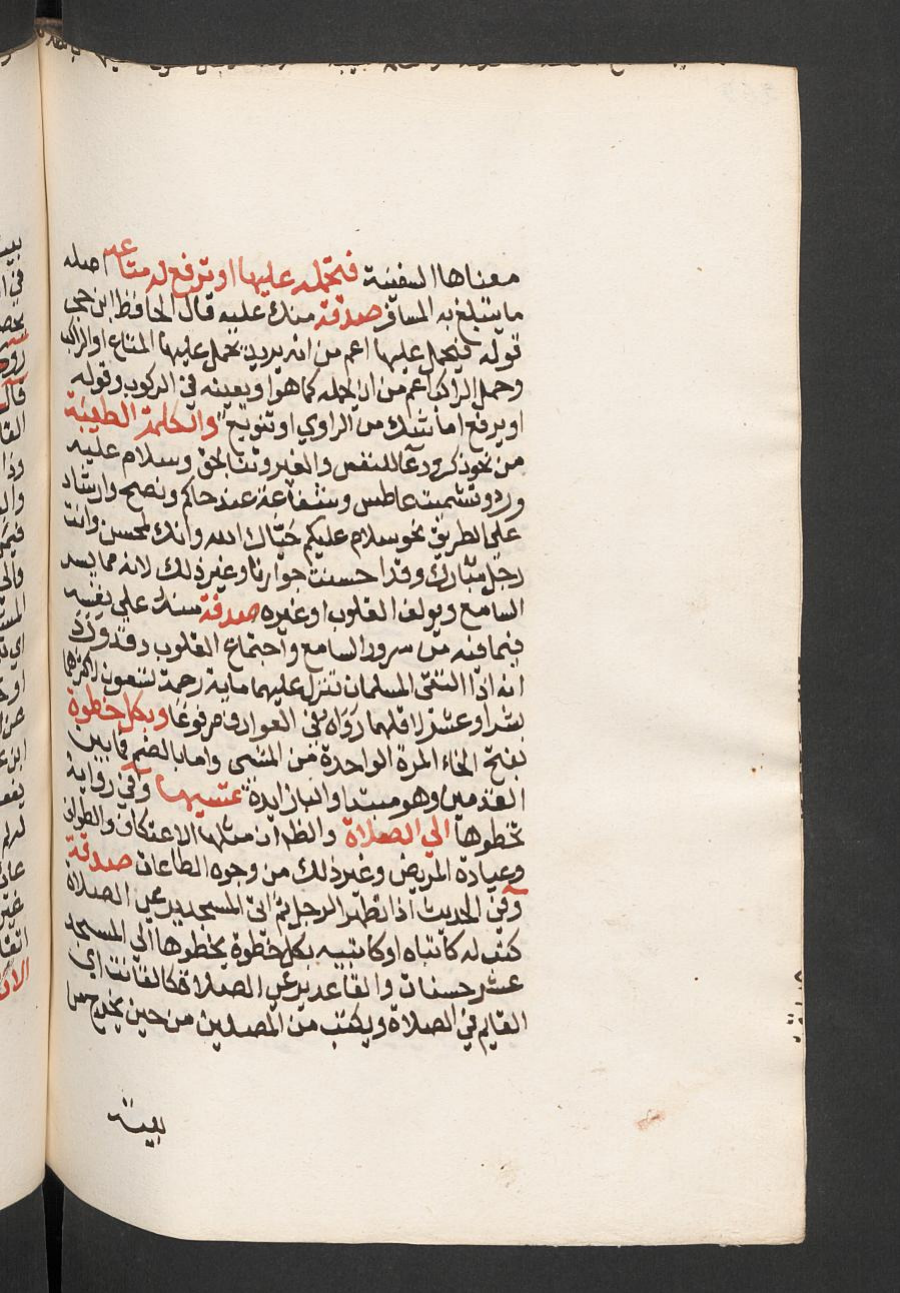 معناها السفينة فتحمله عليها او ترفع له متاعه اصله
ما يتبلغ به المسافر صدقة منك عليه قال الحافظ ابن حجر
قوله فيحمل عليها اعم من انه يريد يحمل عليها المتاع او الراكب
وحمل الراكب اعم من ان يحمله كما هو او يعينه في الركوب وقوله
او يرفع اما شك من الراوي او تنويع والكلمة الطيبة
من نحو ذكر ودعا للنفس والغير وثنا بحق وسلام عليه
ورد وتشميت عاطس وشفاعة عند حاكم ونصح وارشاد
على الطريق نحو سلام عليكم حياك الله وانك لمحسن وانت
رجل مبارك وقد احسنت جوارنا وغير ذلك لانه مما يسر
السامع ويولف القلوب او غيره صدقة منك على نفسه
فيما فيه من سرور السامع واجتماع القلوب وقد ورد
انه اذا التقى المسلمان تنزل عليهما ماية رحمة تسعون لاكثرهما
بشرا وعشر لاقلهما رواه في العوارف مرفوعا وبكل خطوة
بفتح الخاء المرة الواحدة من المشى واما بالضم فما بين
القدمين وهو مبتدا والباء زايدة تمشيها وفي رواية
تخطوها الي الصلاة والظ ان مثلها الاعتكاف والطواف
وعيادة المريض وغير ذلك من وجوه الطاعات صدقة
وفي الحديث اذا تطهر الرجل ثم اتى المسجد يرعى الصلاة
كتب له كاتباه او كاتبيه بكل خطوة يخطوها الى المسجد
عشر حسنات والقاعد يرعى الصلاة كالقانت اي
القايم في الصلاة ويكتب من المصلين من حين يخرج من
بيته